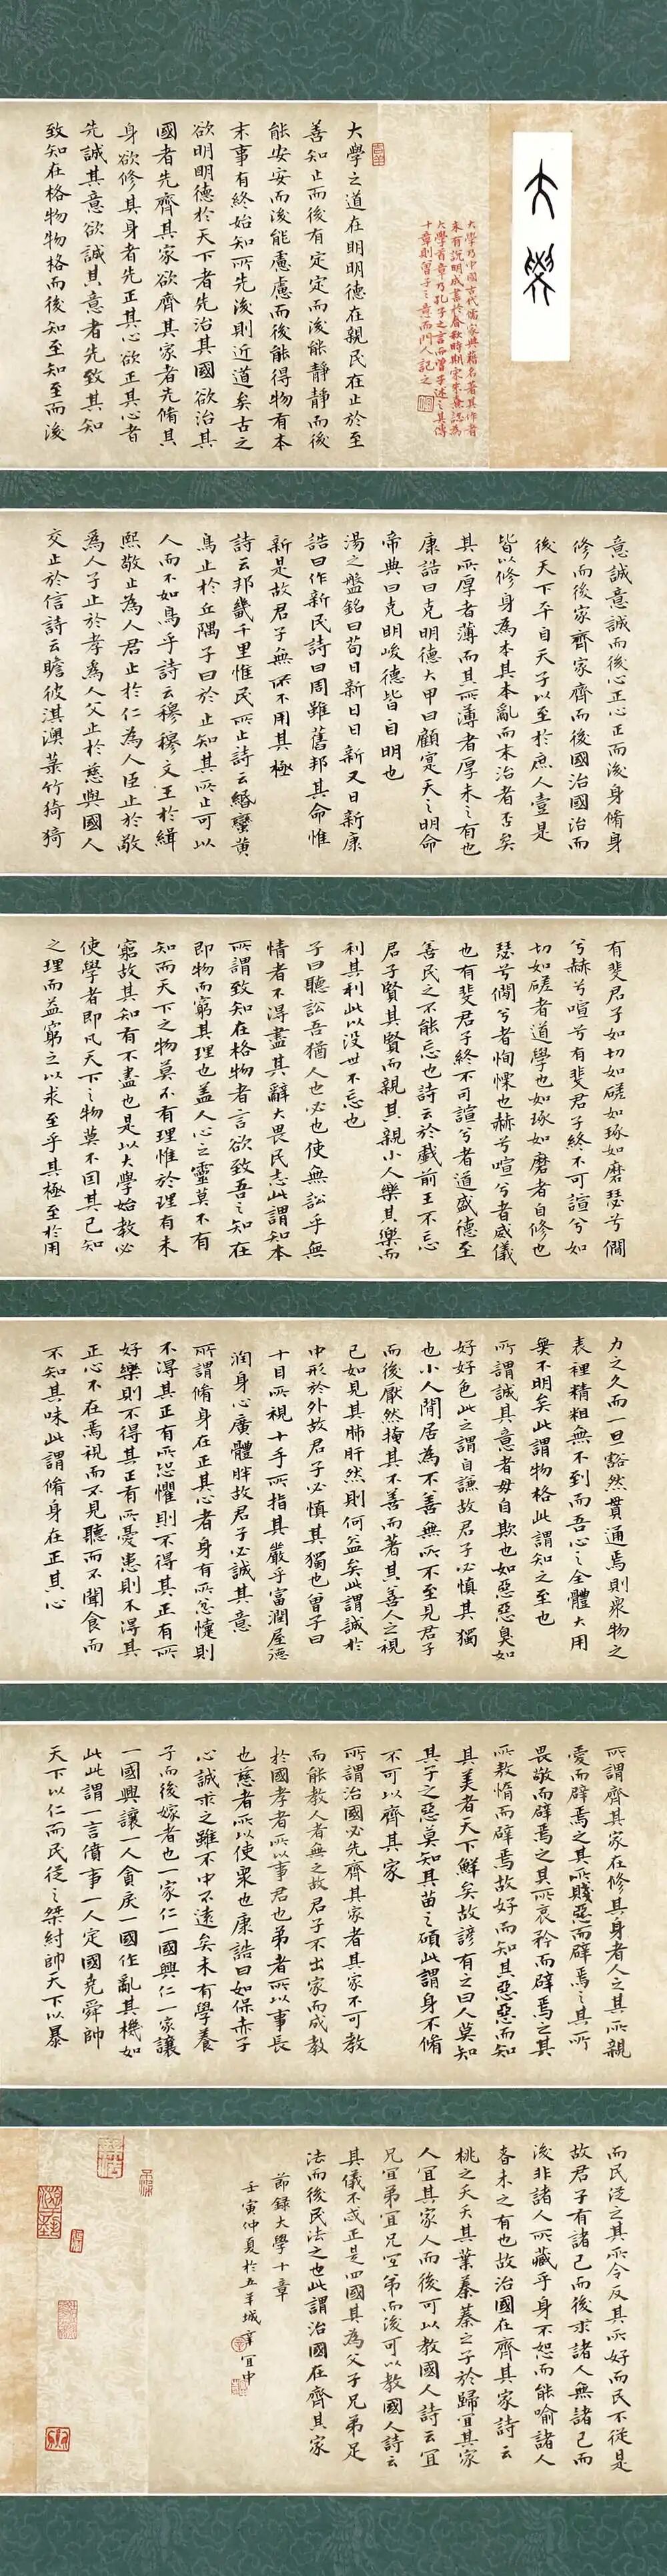 大學
大學乃中國古代儒家典籍名著其作者
未有說明成書於春秋時期宋朱熹認為
大學首章乃孔子之言而曾子述之其傳
十章則曾子之意而門人記之
大學之道在明明德在親民在止於至
善知止而後有定定而後能靜靜而後
能安安而後能慮慮而後能得物有本
末事有終始知所先後則近道矣古之
欲明明德於天下者先治其國欲治其
國者先齊其家欲齊其家者先脩其
身欲修其身者先正其心欲正其心者
先誠其意欲誠其意者先致其知
致知在格物物格而後知至知至而後
意誠意誠而後心正心正而後身脩身
修而後家齊家齊而後國治國治而
後天下平自天子以至於庶人壹是
皆以修身為本其本亂而末治者否矣
其所厚者薄而其所薄者厚未之有也
康誥曰克明德大甲曰顧寔天之明命
帝典曰克明峻德皆自明也
湯之盤銘曰苟日新日日新又日新康
誥曰作新民詩曰周雖舊邦其命惟
新是故君子無所不用其極
詩云邦畿千里惟民所止詩云緡蠻黃
鳥止於丘隅子曰於止知其所止可以
人而不如鳥乎詩云穆穆文王於緝
熙敬止為人君止於仁為人臣止於敬
為人子止於孝為人父止於慈與國人
交止於信詩云瞻彼淇澳菉竹猗猗
有斐君子如切如磋如琢如磨瑟兮僩
兮赫兮喧兮有斐君子終不可諠兮如
切如磋者道學也如琢如磨者自修也
瑟兮僩兮者恂慄也赫兮喧兮者威儀
也有斐君子終不可諠兮者道盛德至
善民之不能忘也詩云於戲前王不忘
君子賢其賢而親其親小人樂其樂而
利其利此以沒世不忘也
子曰聽訟吾猶人也必也使無訟乎無
情者不得盡其辭大畏民志此謂知本
所謂致知在格物者言欲致吾之知在
即物而窮其理也蓋人心之靈莫不有
知而天下之物莫不有理惟於理有未
窮故其知有不盡也是以大學始教必
使學者即凡天下之物莫不因其已知
之理而益窮之以求至乎其極至於用
力之久而一旦豁然貫通焉則眾物之
表裡精粗無不到而吾心之全體大用
無不明矣此謂物格此謂知之至也
所謂誠其意者毋自欺也如惡惡臭如
好好色此之謂自謙故君子必慎其獨
也小人閒居為不善無所不至見君子
而後厭然掩其不善而著其善人之視
己如見其肺肝然則何益矣此謂誠於
中形於外故君子必慎其獨也曾子曰
十目所視十手所指其嚴乎富潤屋德
潤身心廣體胖故君子必誠其意
所謂脩身在正其心者身有所忿懥則
不得其正有所恐懼則不得其正有所
好樂則不得其正有所憂患則不得其
正心不在焉視而不見聽而不聞食而
不知其味此謂脩身在正其心
所謂齊其家在修其身者人之其所親
愛而辟焉之其所賤惡而辟焉之其所
畏敬而辟焉之其所哀矜而辟焉之其
所敖惰而辟焉故好而知其惡惡而知
其美者天下鮮矣故諺有之曰人莫知
其子之惡莫知其苗之碩此謂身不脩
不可以齊其家
所謂治國必先齊其家者其家不可教
而能教人者無之故君子不出家而成教
於國孝者所以事君也弟者所以事長
也慈者所以使眾也康誥曰如保赤子
心誠求之雖不中不遠矣未有學養
子而後嫁者也一家仁一國興仁一家讓
一國興讓一人貪戾一國作亂其機如
此此謂一言僨事一人定國堯舜帥
天下以仁而民從之桀紂帥天下以暴
而民從之其所令反其所好而民不從是
故君子有諸己而後求諸人無諸己而
後非諸人所藏乎身不恕而能喻諸人
者未之有也故治國在齊其家詩云
桃之夭夭其葉蓁蓁之子於歸宜其家
人宜其家人而後可以教國人詩云宜
兄宜弟宜兄宜弟而後可以教國人詩云
其儀不忒正是四國其為父子兄弟足
法而後民法之也此謂治國在齊其家
節錄大學十章
壬寅仲夏於五羊城 宜中